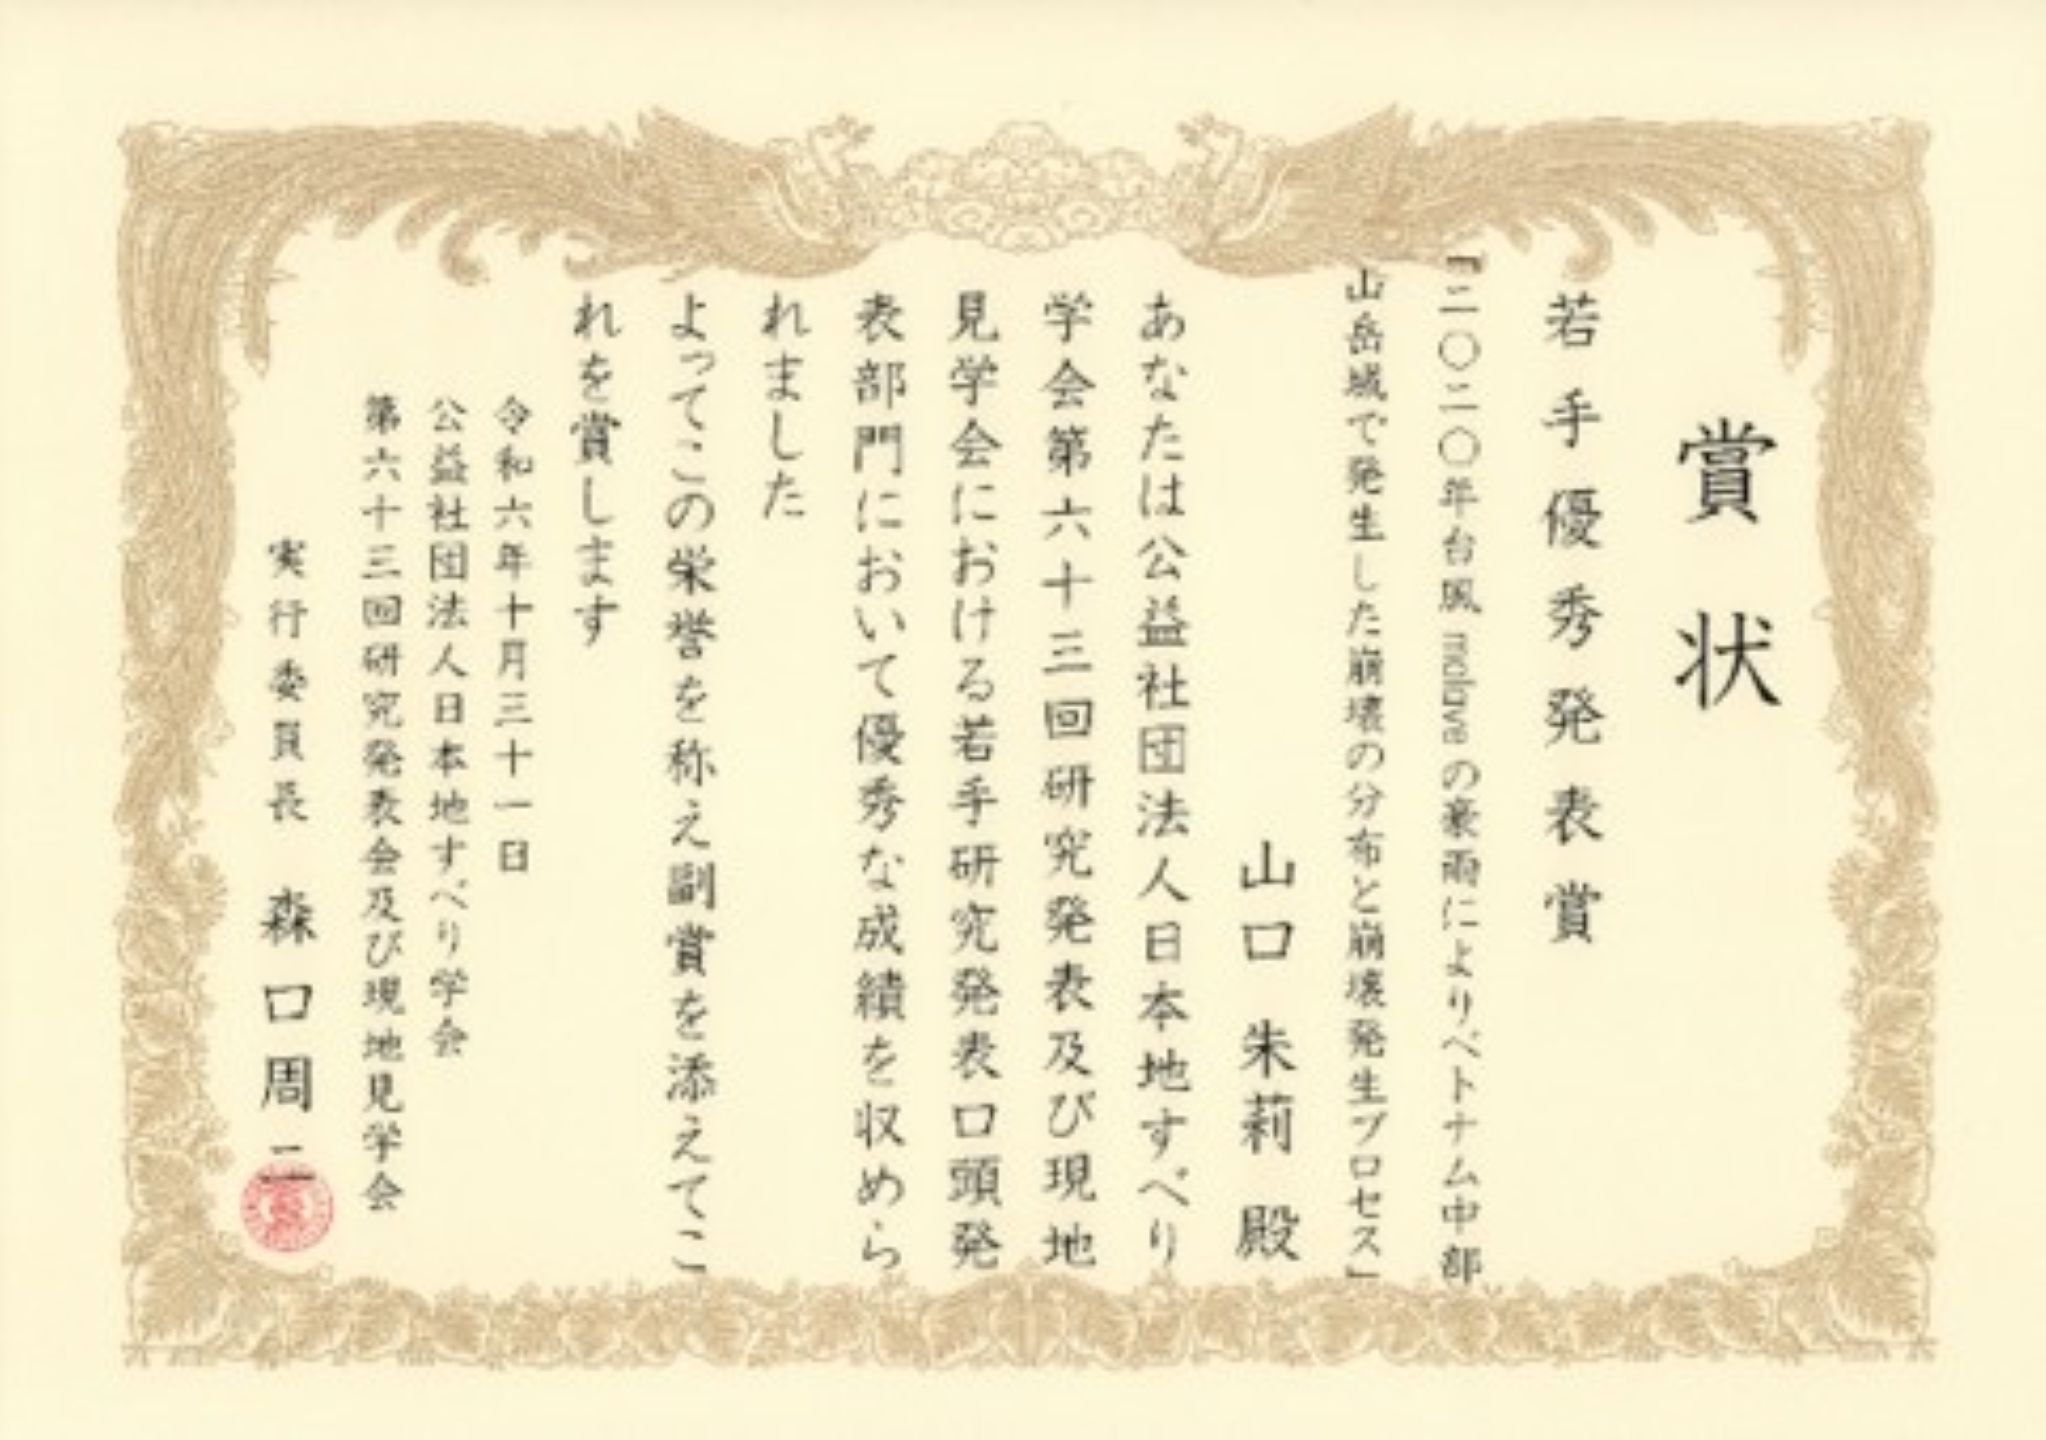 賞状
若手優秀発表賞
「二〇二〇年台風molaveの豪雨によりベトナム中部
山岳域で発生した崩壊の分布と崩壊発生プロセス」
山口 朱莉 殿
あなたは公益社団法人日本地すべり
学会第六十三回研究発表及び現地
見学会における若手研究発表口頭発
表部門において優秀な成績を収めら
れました
よってこの栄誉を称え副賞を添えてこ
れを賞します
令和六年十月三十一日
公益社団法人日本地すべり学会
第六十三回研究発表会及び現地見学会
実行委員長 森口周二